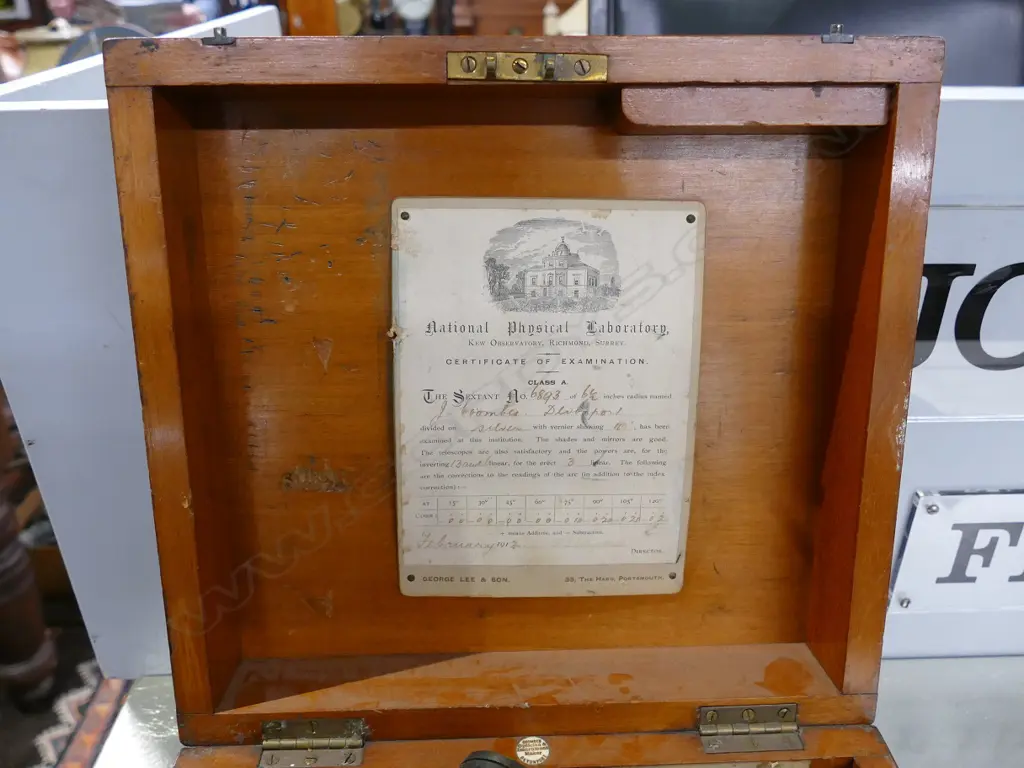 National Physical Laboratory,
Kew Observatory, Richmond, Surrey.
CERTIFICATE OF EXAMINATION.
CLASS A.
The Sextant No. 6893 of 6½ inches radius named
J. Coombes Devonport
divided on silver with vernier showing 10" has been
examined at this institution. The shades and mirrors are good.
The telescopes are also satisfactory and the powers are, for the
inverting linear, for the erect 3 linear. The following
are the corrections to the readings of the arc (in addition to the index
correction):—
AT 15° 30° 45° 60° 75° 90° 105° 120°
CORR
+ means Additive, and − Subtractive.
February 1913
Director.
GEORGE LEE & SON, 33, THE HARD, PORTSMOUTH.